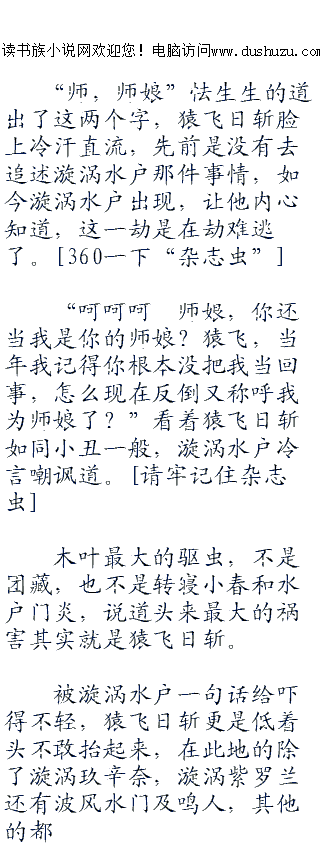 读书族小说网欢迎您！电脑访问www.dushuzu.com
“师，师娘”怯生生的道
出了这两个字，猿飞日斩脸
上冷汗直流，先前是没有去
追述漩涡水户那件事情，如
今漩涡水户出现，让他内心
知道，这一劫是在劫难逃
了。[360一下“杂志虫”]
“呵呵呵　师娘，你还
当我是你的师娘？猿飞，当
年我记得你根本没把我当回
事，怎么现在反倒又称呼我
为师娘了？”看着猿飞日斩
如同小丑一般，漩涡水户冷
言嘲讽道。[请牢记住杂志
虫]
木叶最大的驱虫，不是
团藏，也不是转寝小春和水
户门炎，说道头来最大的祸
害其实就是猿飞日斩。
被漩涡水户一句话给吓
得不轻，猿飞日斩更是低着
头不敢抬起来，在此地的除
了漩涡玖辛奈，漩涡紫罗兰
还有波风水门及鸣人，其他
的都